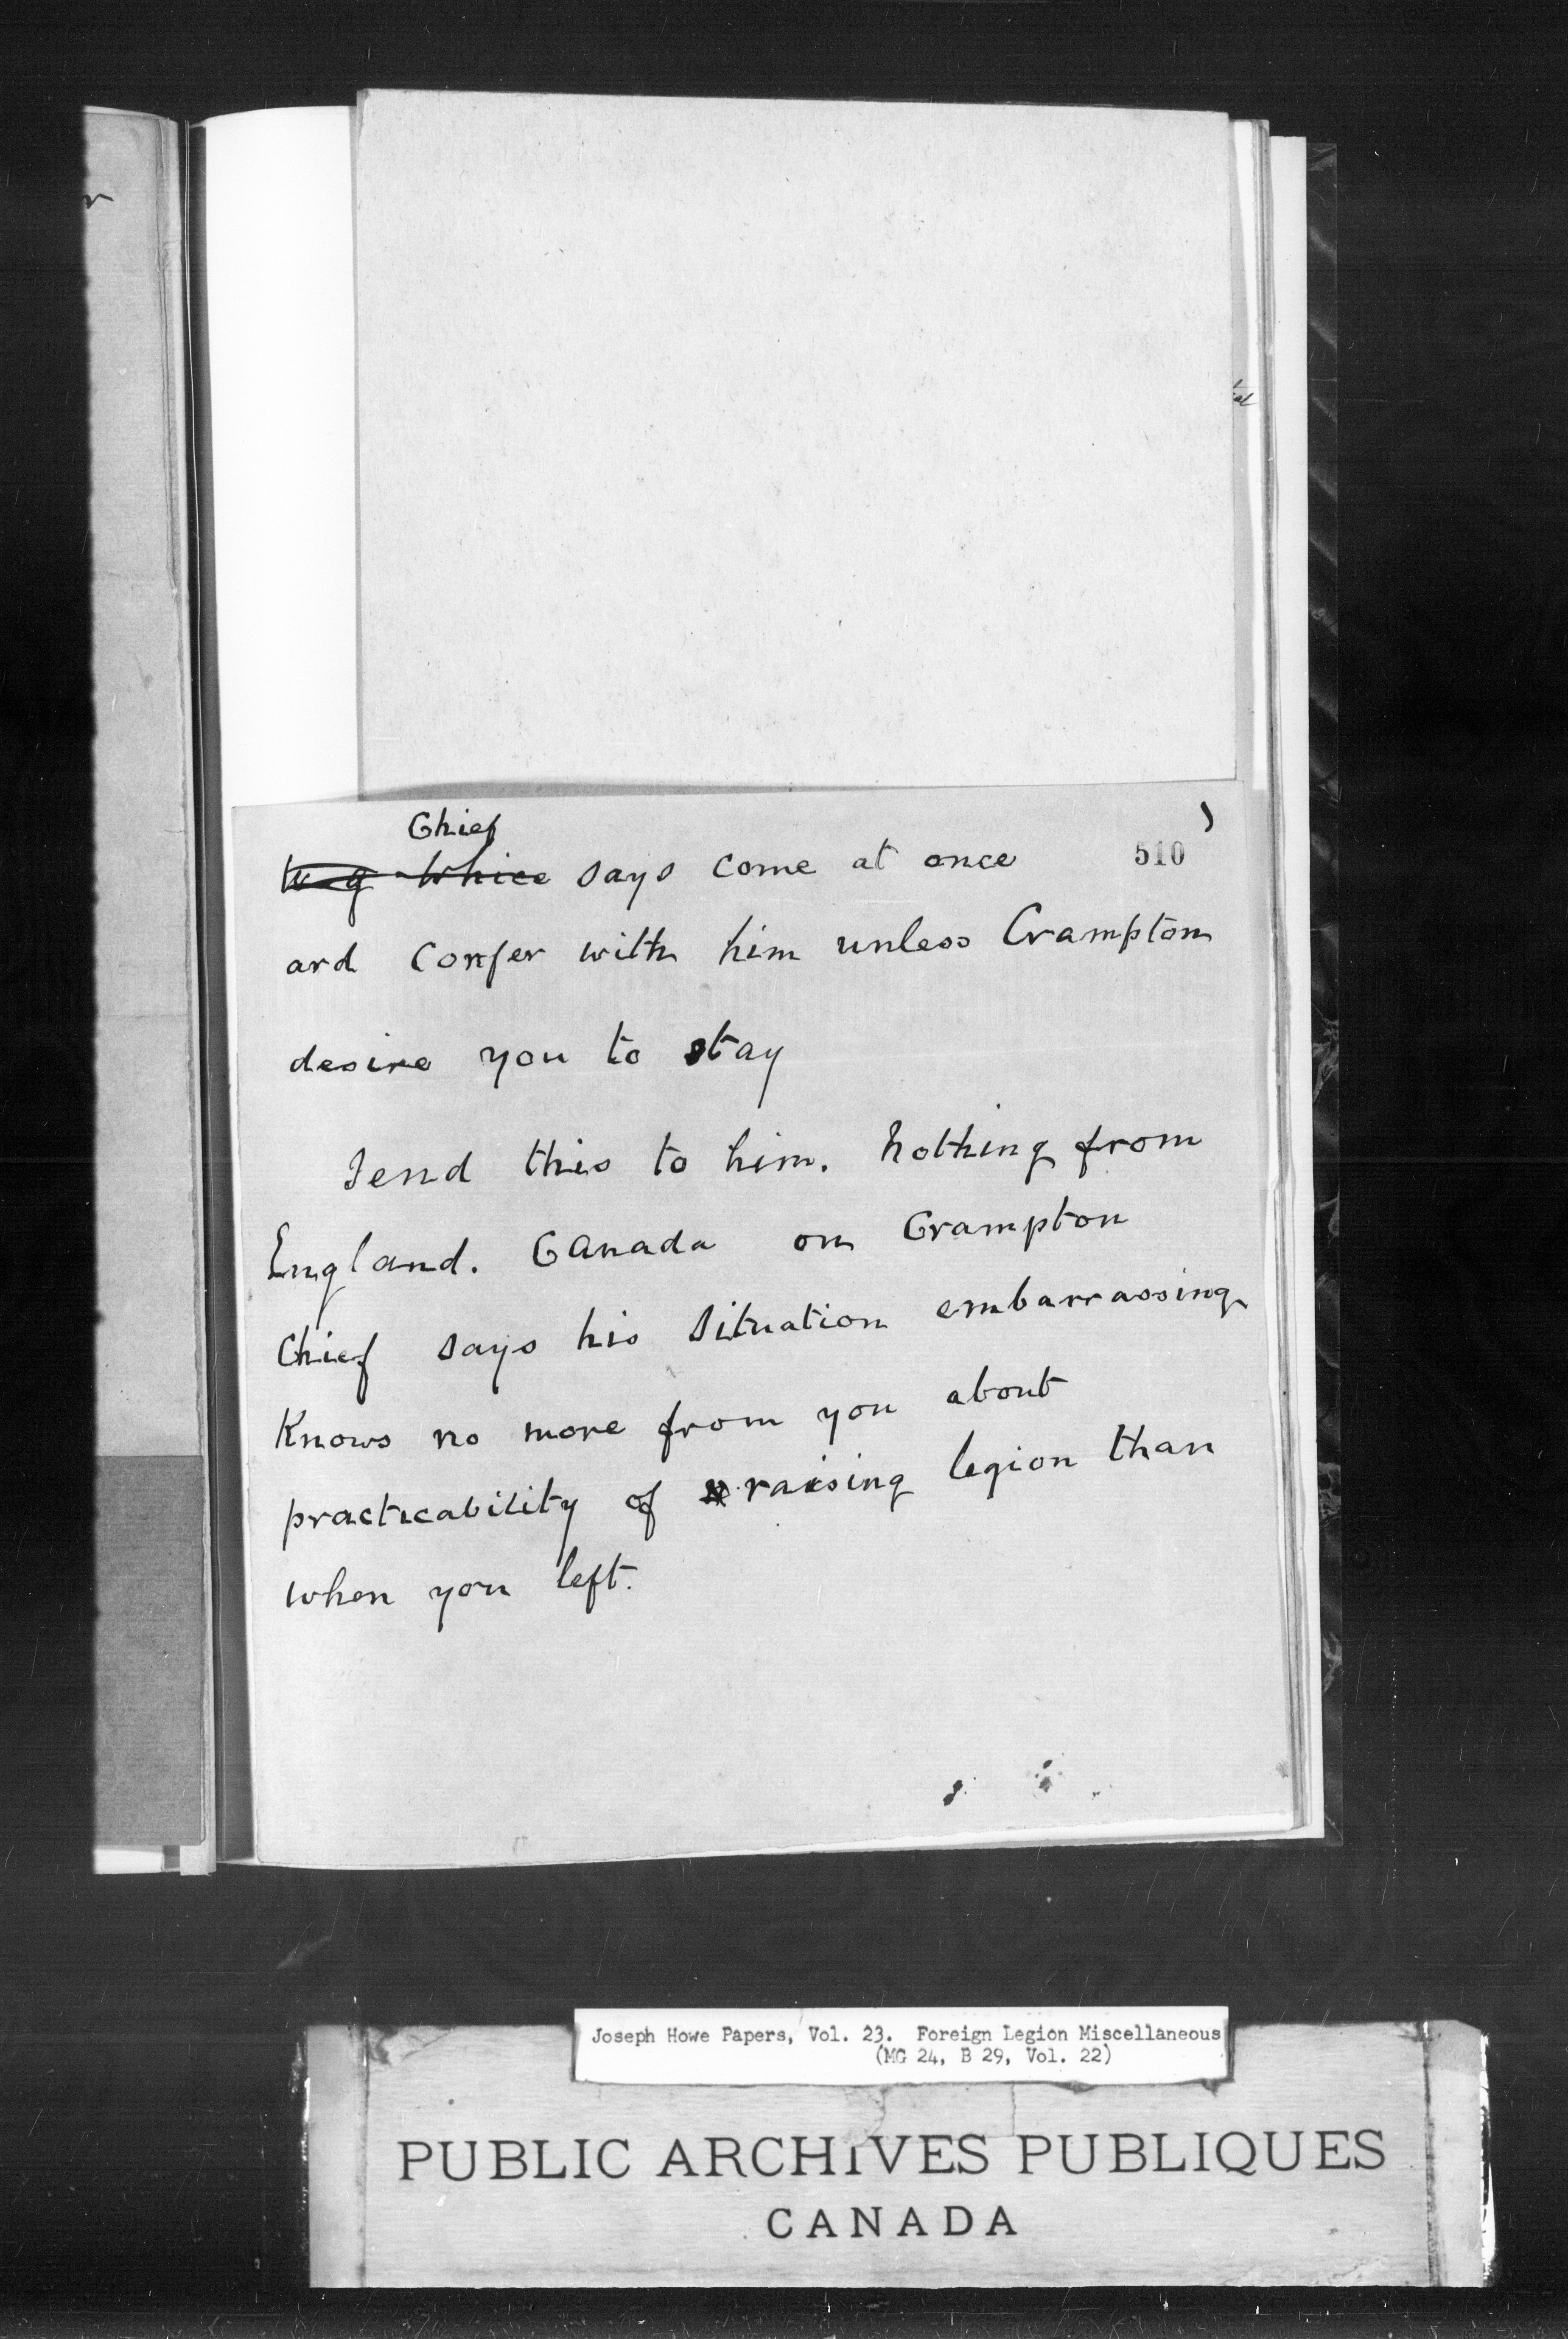 Chief
510
W g Whice says come at once
and confer with him unless Crampton
desire you to stay
Send this to him. Nothing from
England. Canada on Crampton
Chief says his situation embarrassing
Knows no more from you about
practicability of raising legion than
when you left.
Joseph Howe Papers, Vol. 23. Foreign Legion Miscellaneous
(MG 24, B 29, Vol. 22)
PUBLIC ARCHIVES PUBLIQUES
CANADA